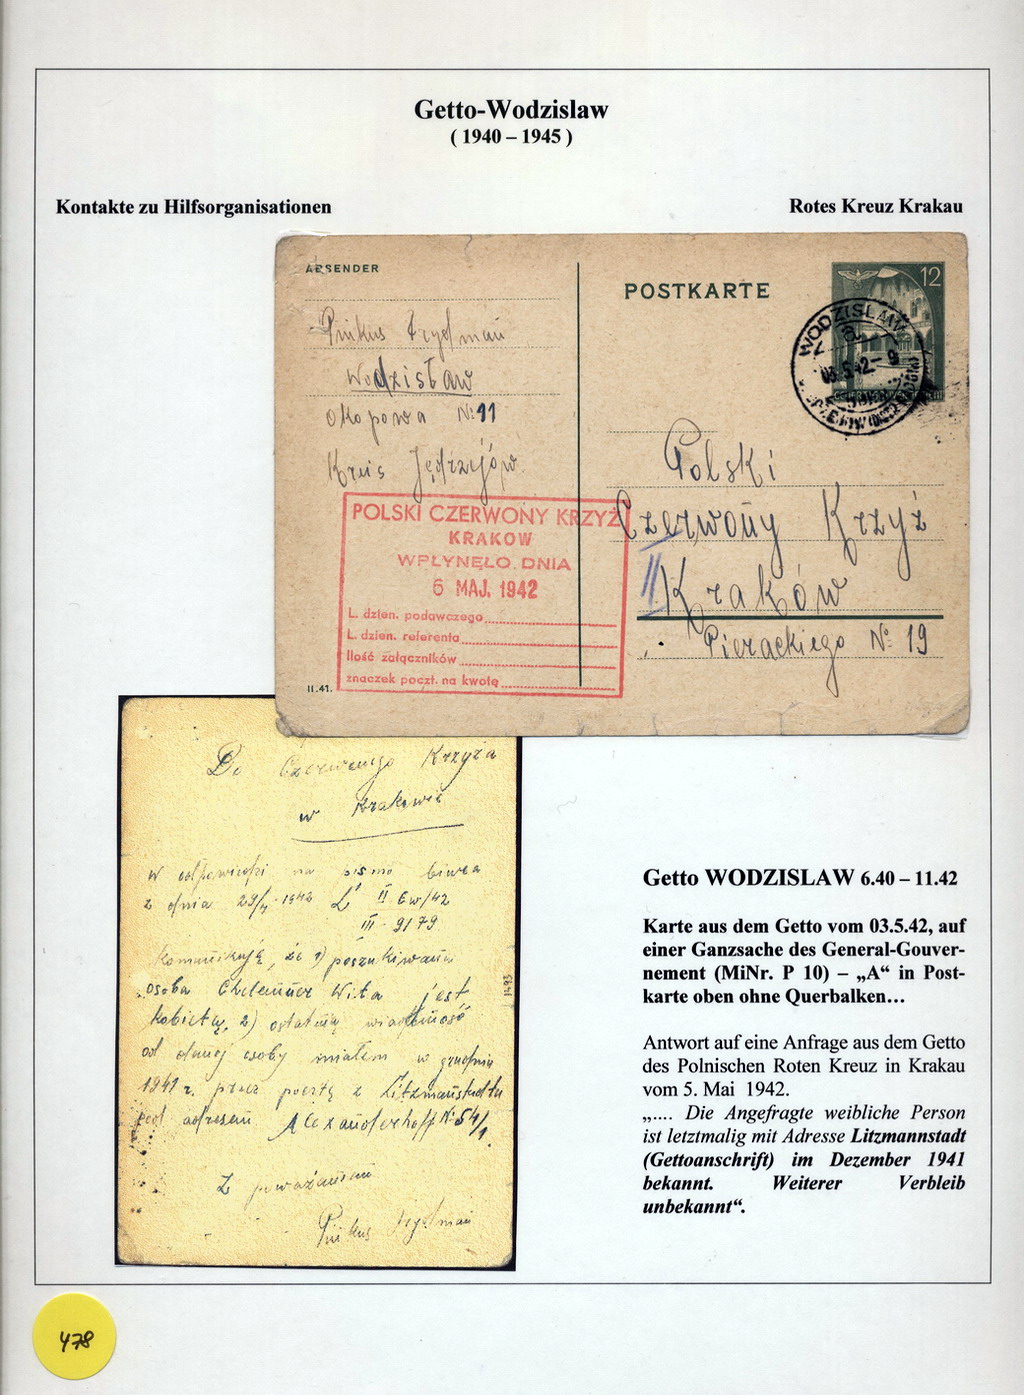 Getto-Wodzislaw
( 1940 – 1945 )
Kontakte zu Hilfsorganisationen
Rotes Kreuz Krakau
ABSENDER
Pinkus Frydman
Wodzisław
Okopowa №11
Kreis Jędrzejów
POSTKARTE
12
WODZISLAW
a
03.5.42-9
Polski
Czerwony Krzyż
Kraków
Pierackiego № 19
POLSKI CZERWONY KRZYŻ
KRAKOW
WPŁYNĘŁO. DNIA
6 MAJ. 1942
L. dzien. podawczego
L. dzien. referenta
Ilość załączników
znaczek poczt. na kwotę
II.41.
Do Czerwonego Krzyża
w Krakowie
W odpowiedzi na pismo biura
z dnia 29/4 1942 L II Ew/42
III - 9179
Komunikuję, że 1) poszukiwana
osoba Wita jest
kobietą, 2) ostatnią wiadomość
od danej osoby miałem w grudniu
1941 r. przez pocztę z Litzmanstadtu
pod adresem Alexanderhoff № 54/1.
Z poważaniem
Pinkus Frydman
1493
Getto WODZISLAW 6.40 – 11.42
Karte aus dem Getto vom 03.5.42, auf
einer Ganzsache des General-Gouver-
nement (MiNr. P 10) – „A“ in Post-
karte oben ohne Querbalken…
Antwort auf eine Anfrage aus dem Getto
des Polnischen Roten Kreuz in Krakau
vom 5. Mai 1942.
„.... Die Angefragte weibliche Person
ist letztmalig mit Adresse Litzmannstadt
(Gettoanschrift) im Dezember 1941
bekannt. Weiterer Verbleib
unbekannt“.
478